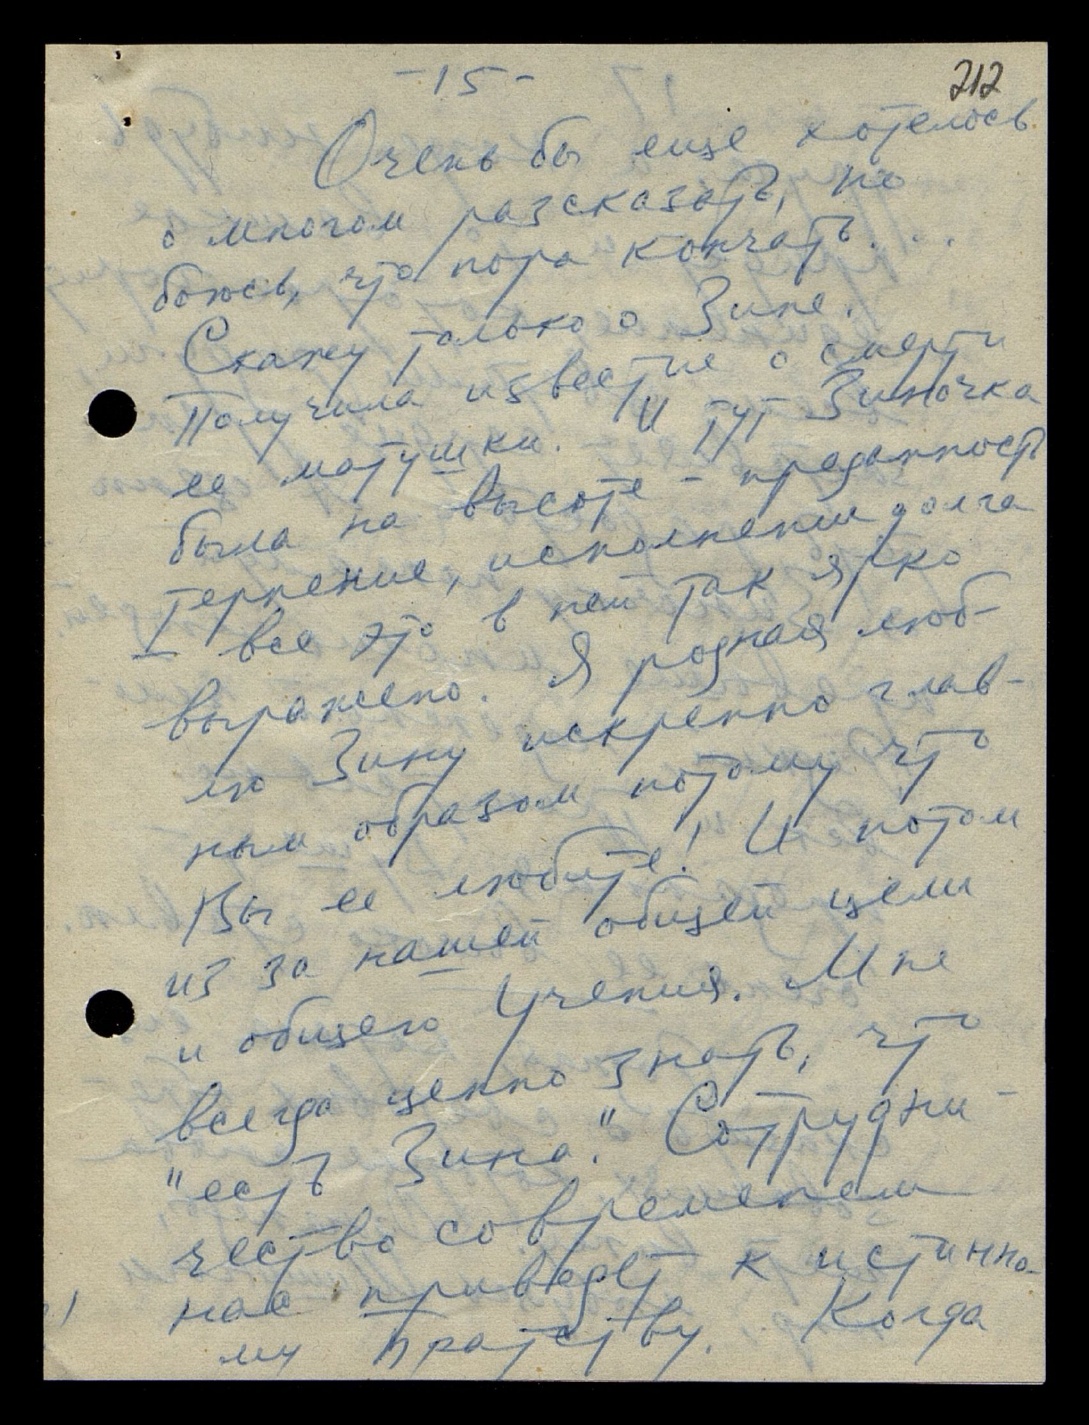 -15-
212
Очень бы еще хотелось
о многом разсказать, но
боюсь, что пора кончать...
Скажу только о Зине.
Получила известие о смерти
ее матушки. И тут Зиночка
была на высоте - преданность
терпение, исполнении долга
все это в ней так ярко
выражено. Я родная люб-
лю Зину искренно глав-
ным образом потому что
Вы ее любите! И потом
из за нашей общей цели
и общего Учения. Мне
всегда ценно знать, что
"есть Зина." Сотрудни-
чество современем
нас приведет к истинно-
му братству. Когда